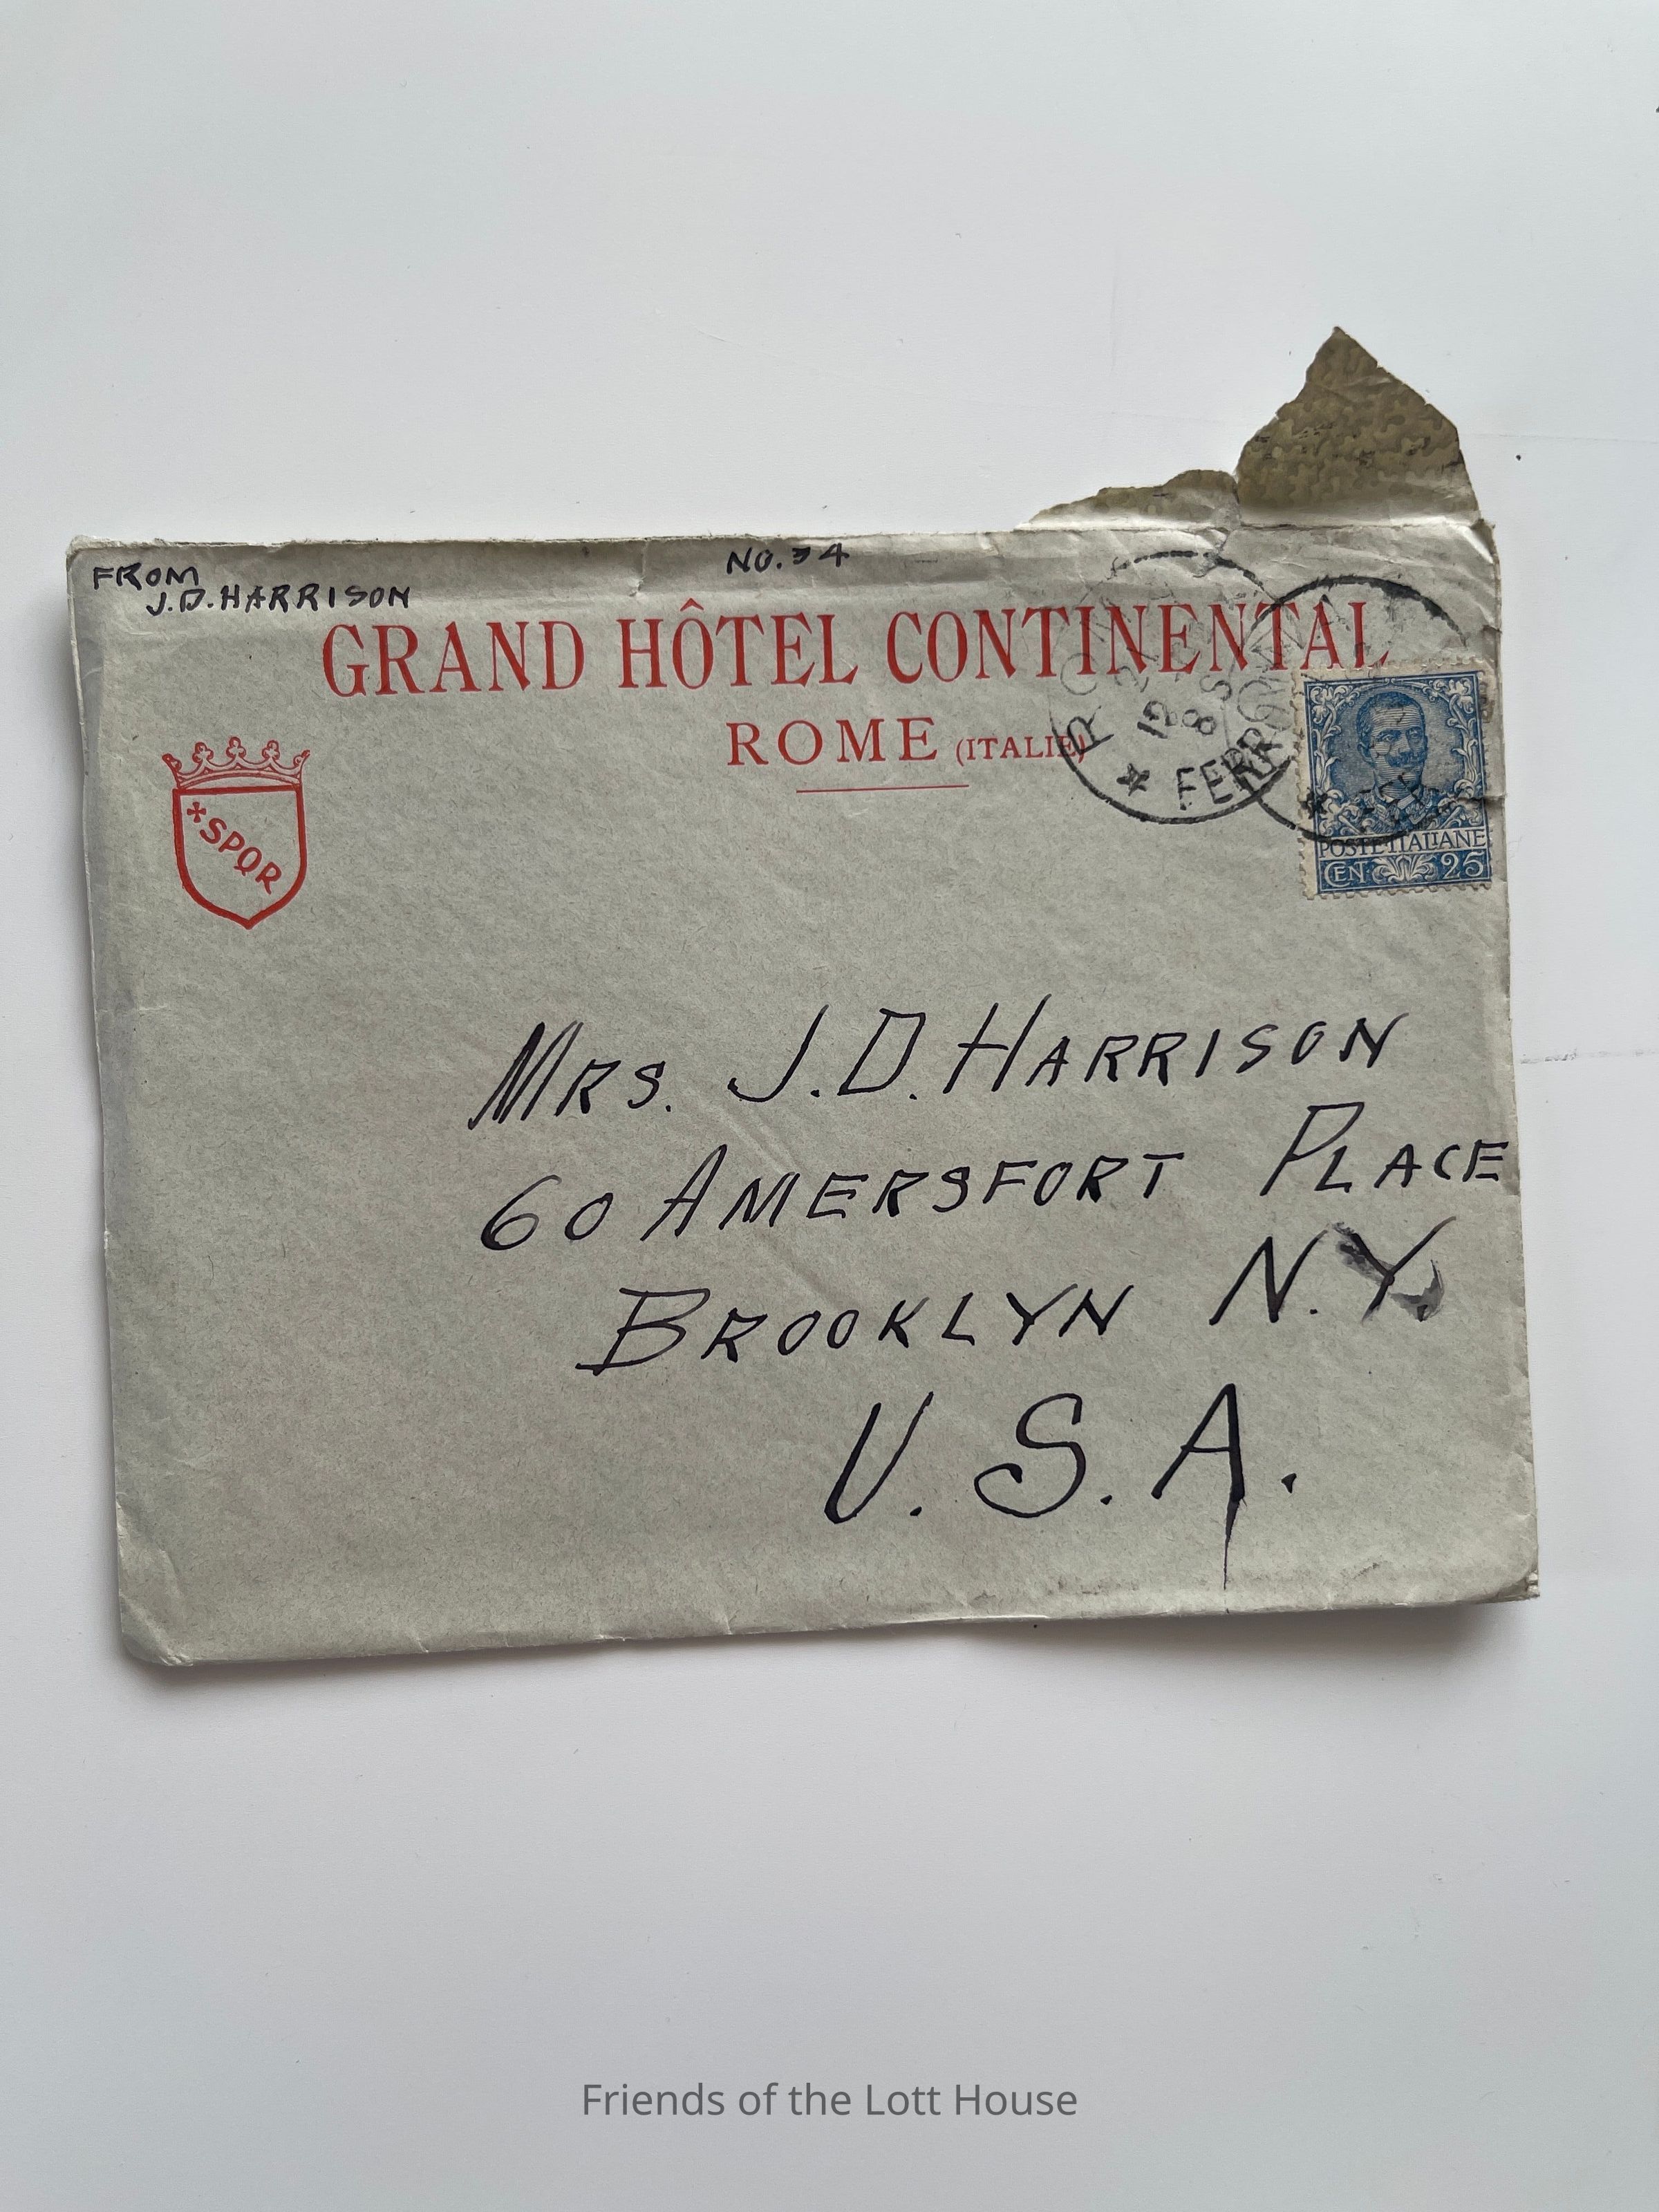 FROM
J.D. HARRISON
NO. 34
GRAND HÔTEL CONTINENTAL
ROME (ITALIE)
*SPQR
ROMA
12
8 S
* FERROVIA
POSTE ITALIANE
CEN. 25
MRS. J.D. HARRISON
60 AMERSFORT PLACE
BROOKLYN N.Y.
U.S.A.
Friends of the Lott House